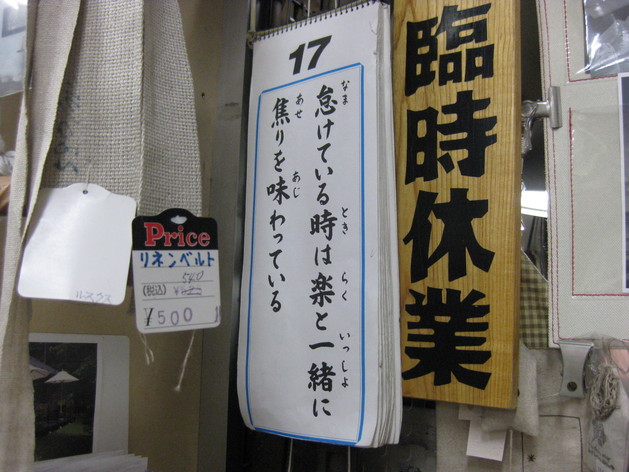 17
怠けている時は楽と一緒に
なま
とき
らく
いっしょ
焦りを味わっている
あせ
あじ
臨時休業
Price
リネンベルト
(税込)
¥500